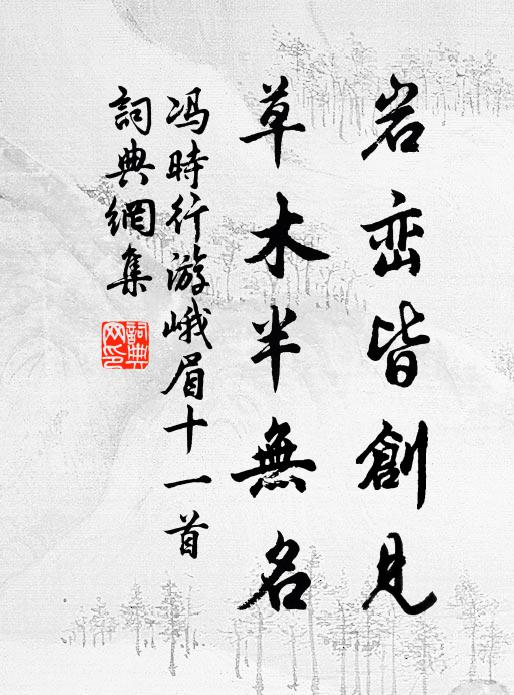 岩峦皆創見
草木半無名
冯時行游峨眉十一首
詞典網集
詞典
网印